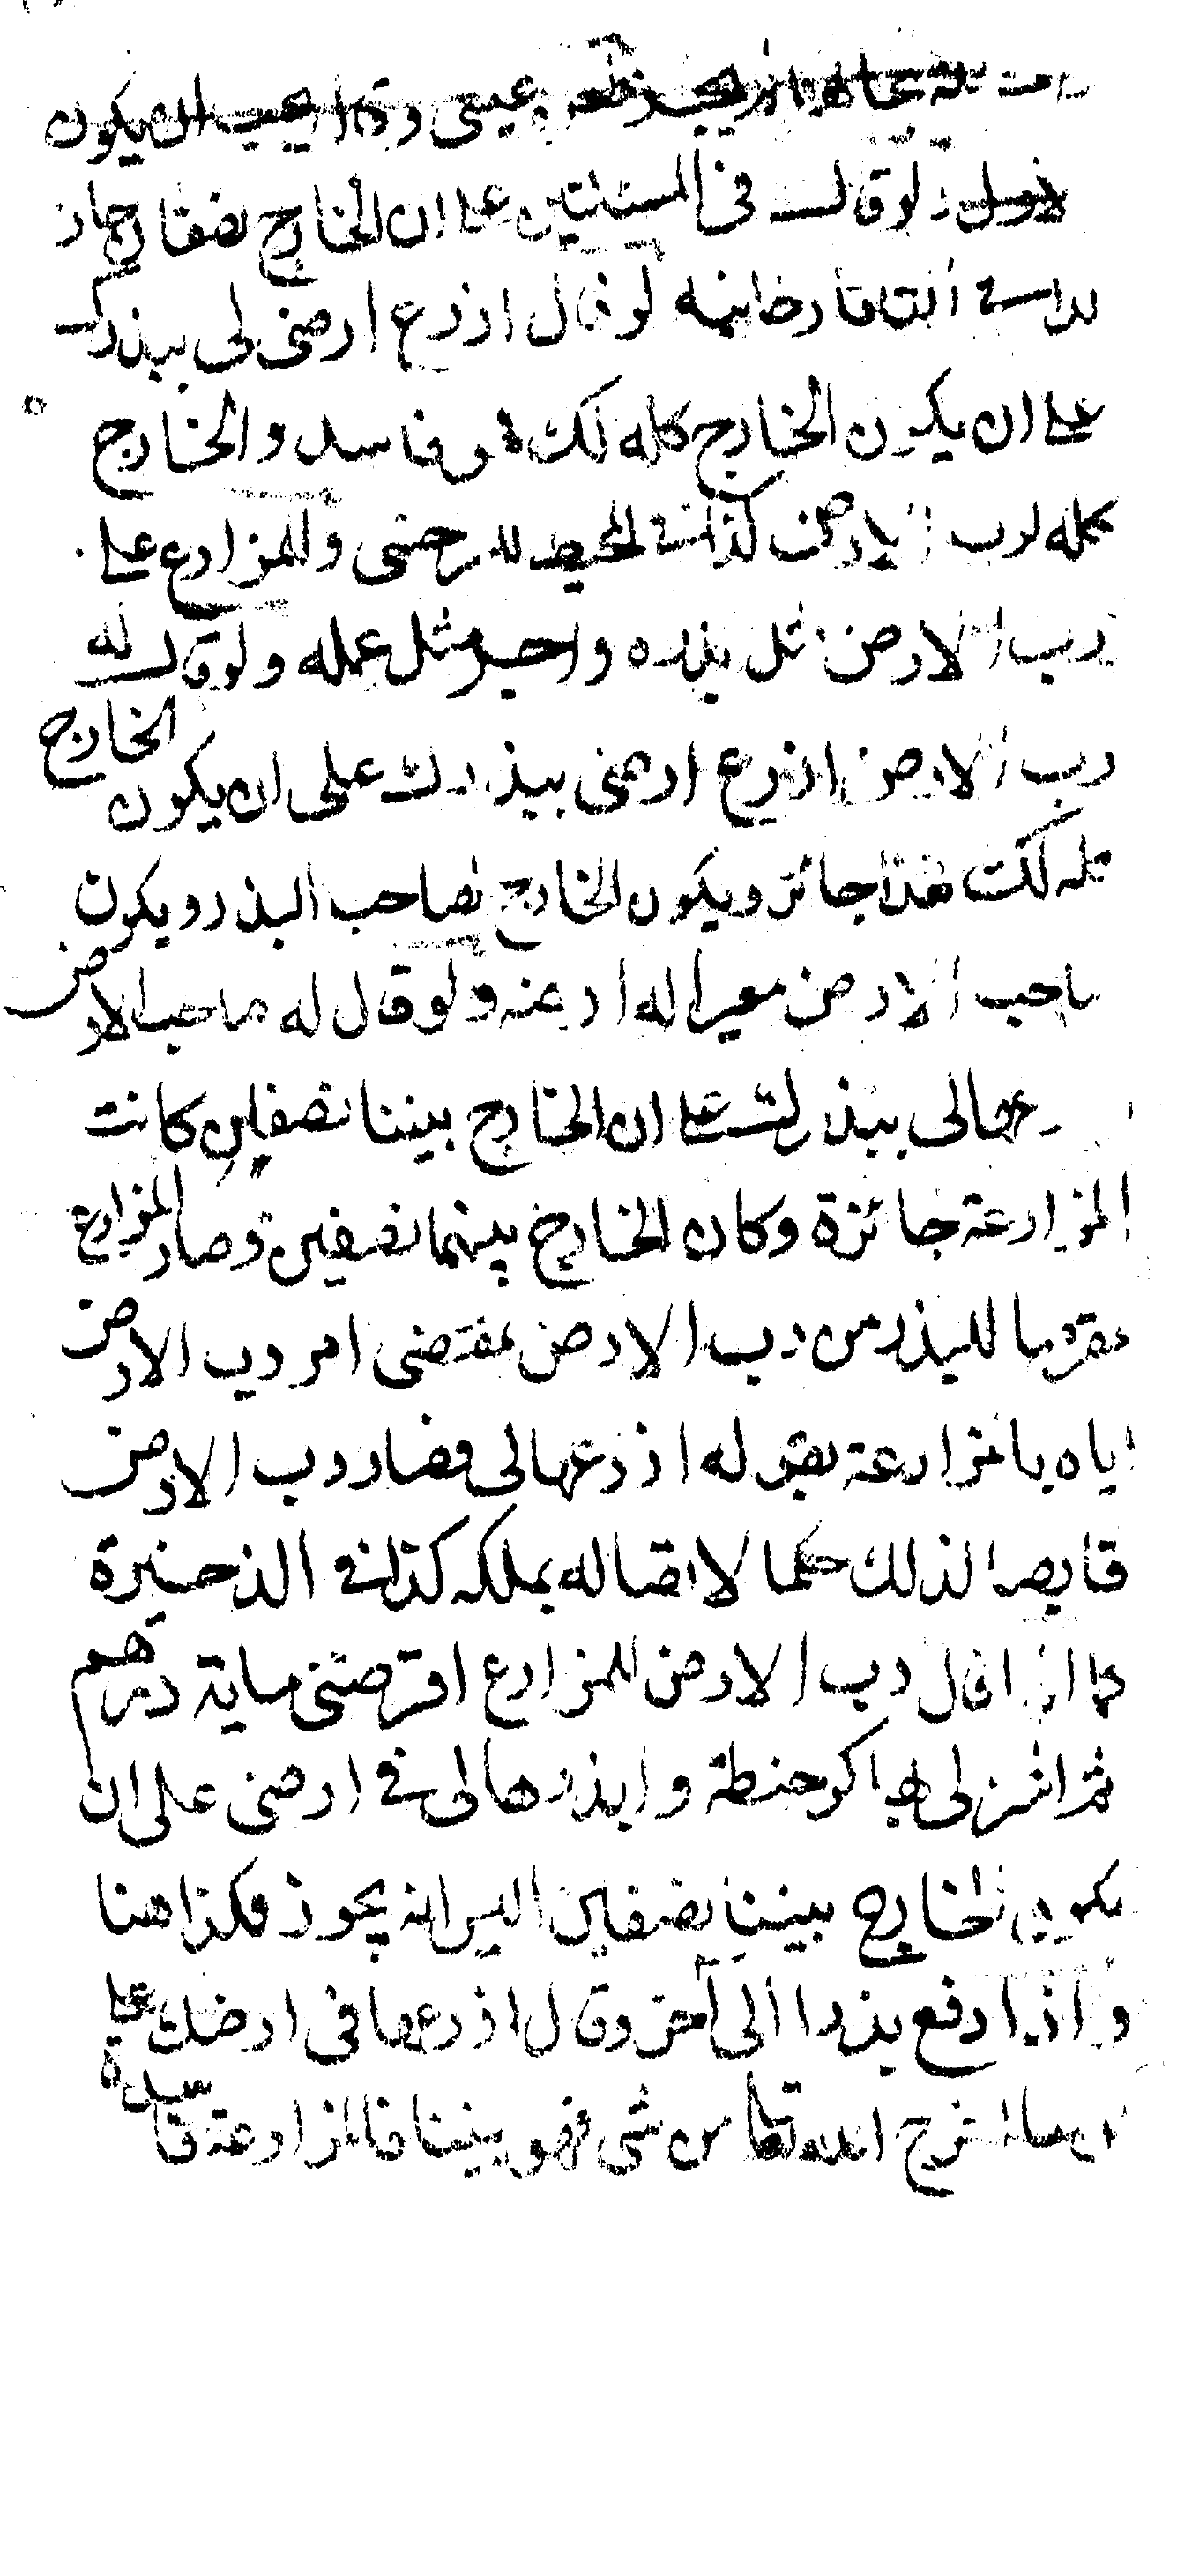 عيسى وذا يجب ان يكون
لو قال فى المسئلتين على ان الخارج نصفان جاز
التاتارخانيه لو قال ازرع ارضى لى ببذرك
على ان يكون الخارج كله لك فهو فاسد والخارج
كله لرب الارض كذا فى المحيط للسرخسى وللمزارع على
رب الارض مثل بذره واجر مثل عمله ولو قال له
رب الارض ازرع ارضى ببذرك على ان يكون الخارج
كله لك فهذا جائز ويكون الخارج لصاحب البذر ويكون
صاحب الارض معيرا له ارضه ولو قال له صاحب الارض
ازرعها لى ببذرك على ان الخارج بيننا نصفين كانت
المزارعة جائزة وكان الخارج بينهما نصفين وصار المزارع
مقرضا للبذر من رب الارض بمقتضى امر رب الارض
اياه بالمزارعة بقوله ازرعها لى فصار رب الارض
قابضا لذلك حكما لاتصاله بملكه كذا فى الذخيرة
كما اذا قال رب الارض للمزارع اقرضنى ماية درهم
ثم اشتر لى بها كر حنطة وابذرها لى فى ارضى على ان
يكون الخارج بيننا نصفين اليس انه يجوز فكذا هنا
واذا دفع بذرا الى آخر وقال ازرعها فى ارضك على
ان ما اخرج الله تعالى من شى فهو بيننا فالمزارعة فاسدة